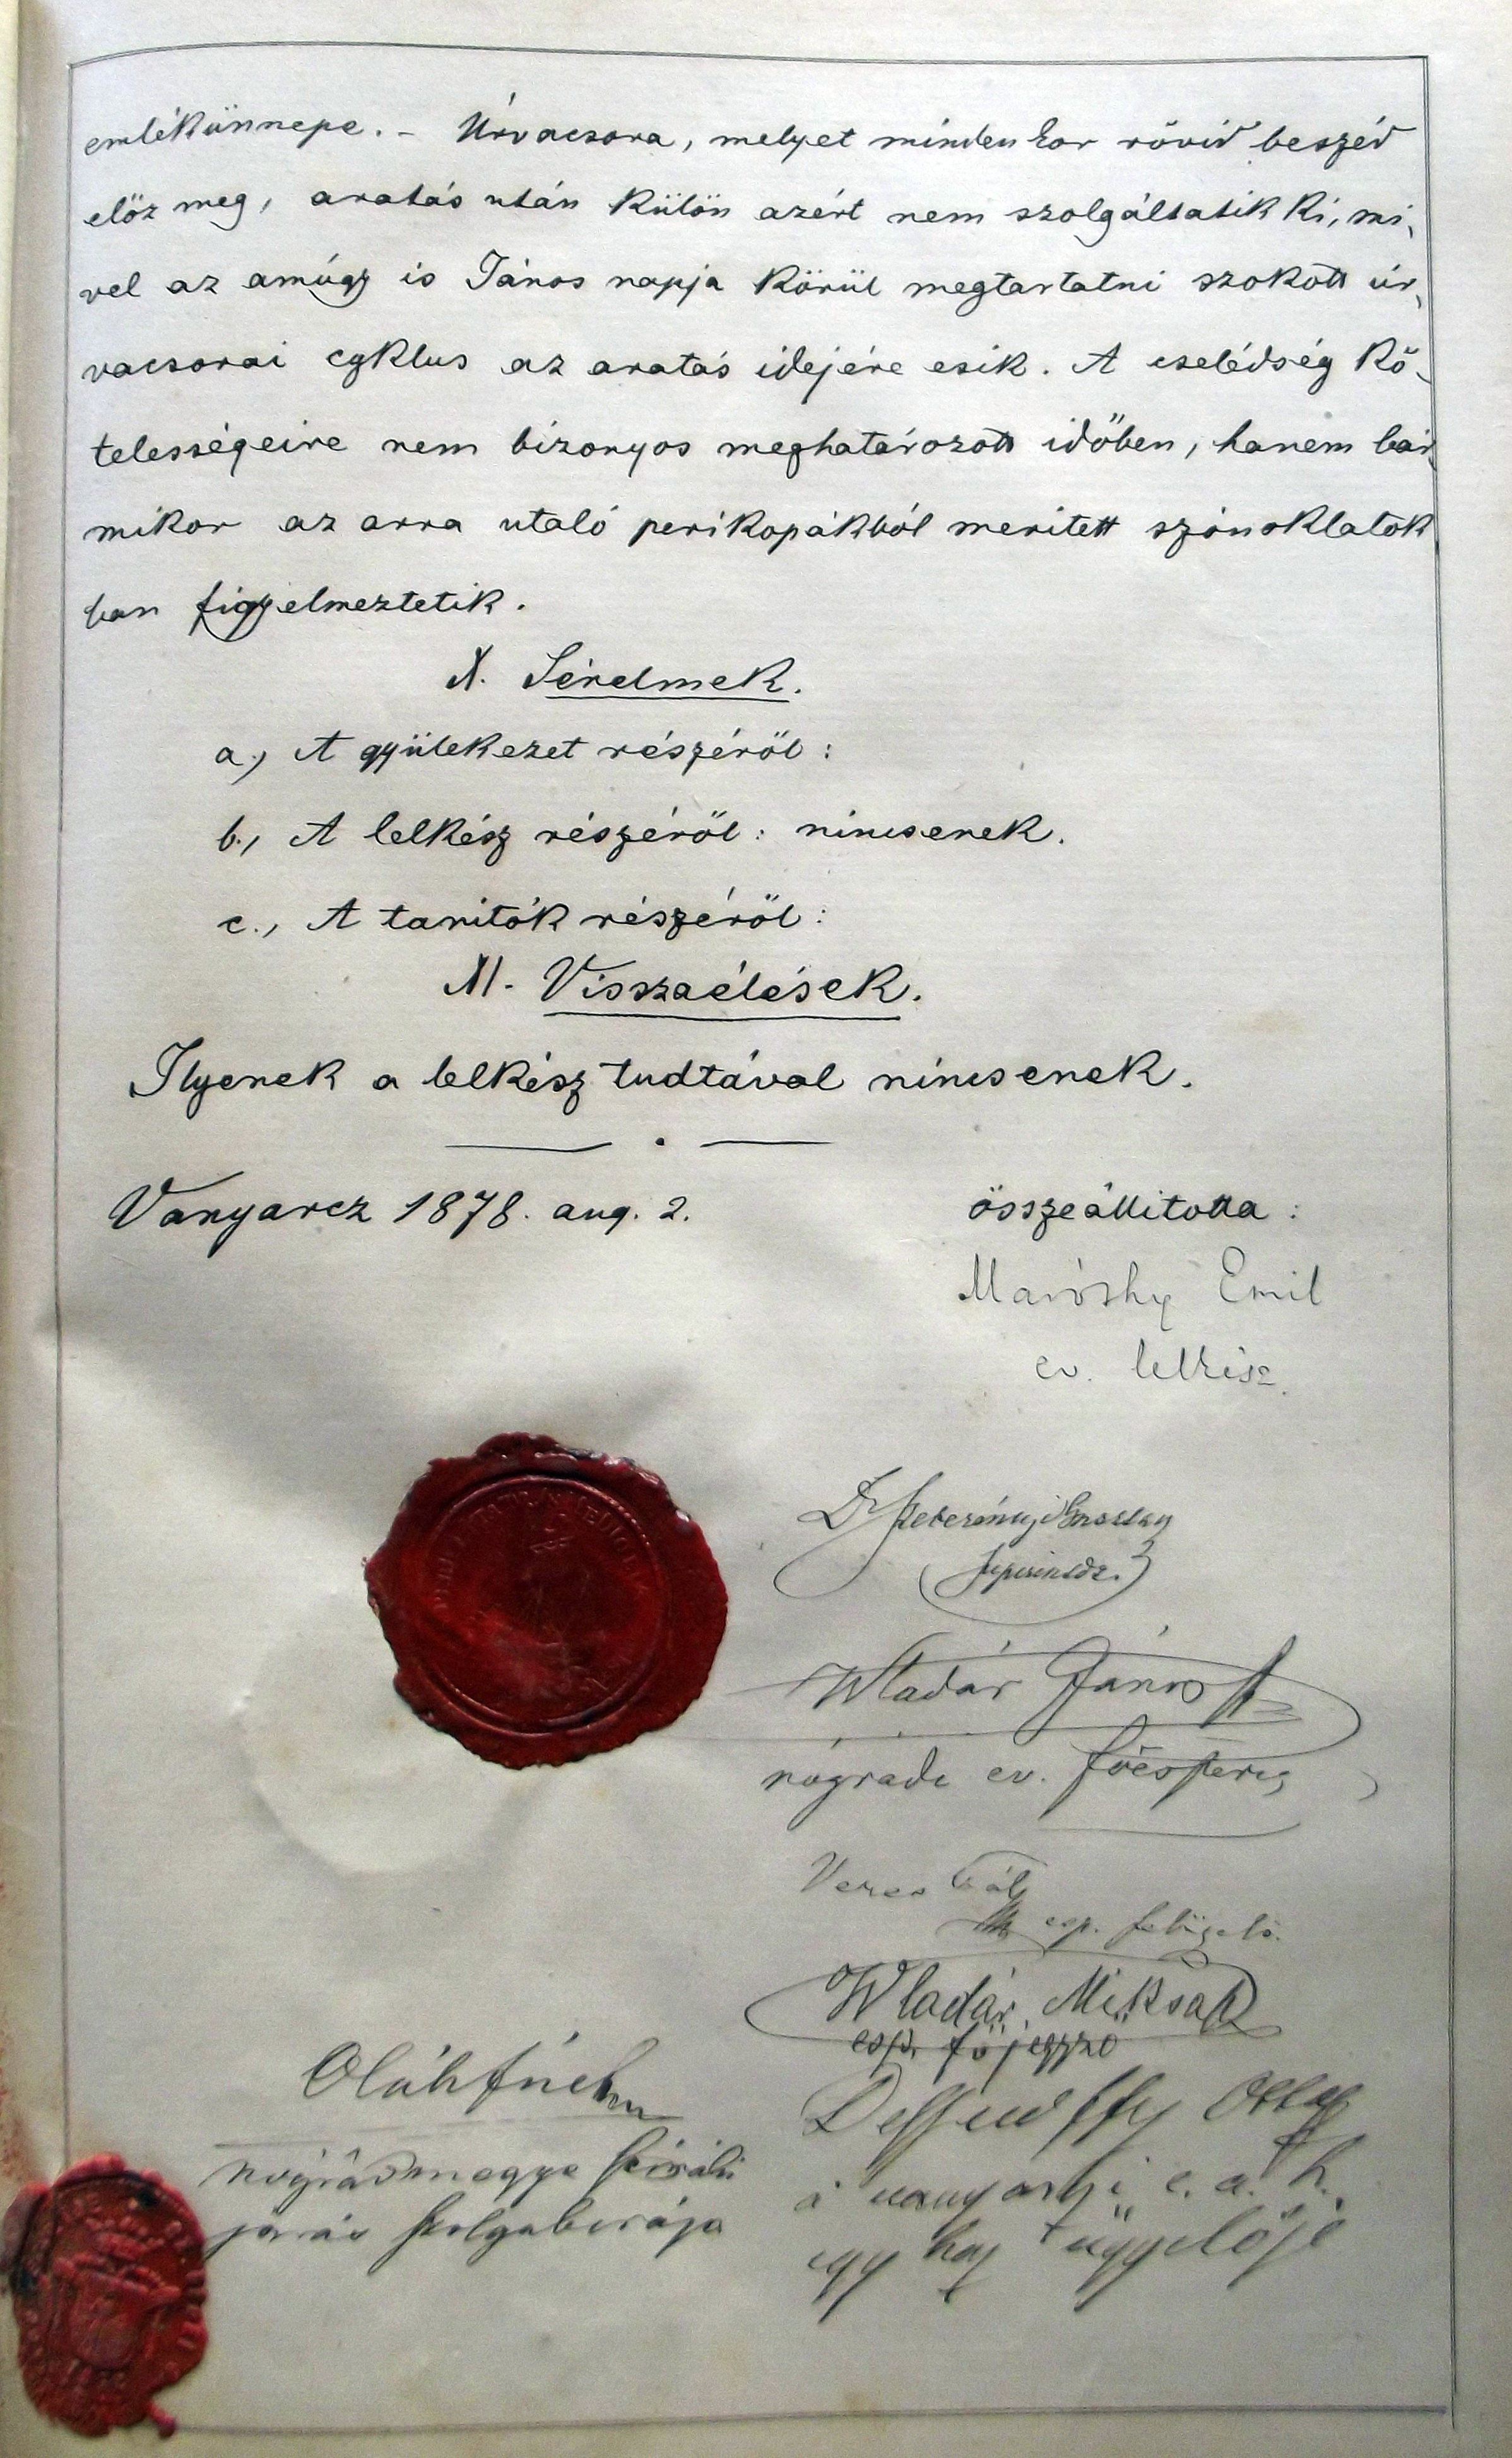 emlékünnepe. – Úrvacsora, melyet mindenkor rövid beszéd
előz meg, aratás után külön azért nem szolgáltatik ki, mi,
vel az amúgy is János napja körül megtartatni szokott úr,
vacsorai cyklus az aratás idejére esik. A cselédség kö,
telességeire nem bizonyos meghatározott időben, hanem bár,
mikor az arra utaló perikopákból merített szónoklatok
ban figyelmeztetik.
X. Sérelmek.
a., A gyülekezet részéről:
b., A lelkész részéről: nincsenek.
c., A tanitók részéről:
XI. Visszaélések.
Ilyenek a lelkész tudtával nincsenek.
Vanyarcz 1878. aug. 2.
összeállitotta:
Maróthy Emil
ev. lelkész.
Dr Szeberényi Gusztáv
Superintds.
Wladár János
nógrádi ev. főesperes
Veres Pál
esp. felügyelő.
Wladár Miksa
esp. főjegyző
Oláh
nógrádmegye sziráki
járás szolgabirája
Dessewffy Otto
a vanyarczi e. a. h.
egyház ügyelője